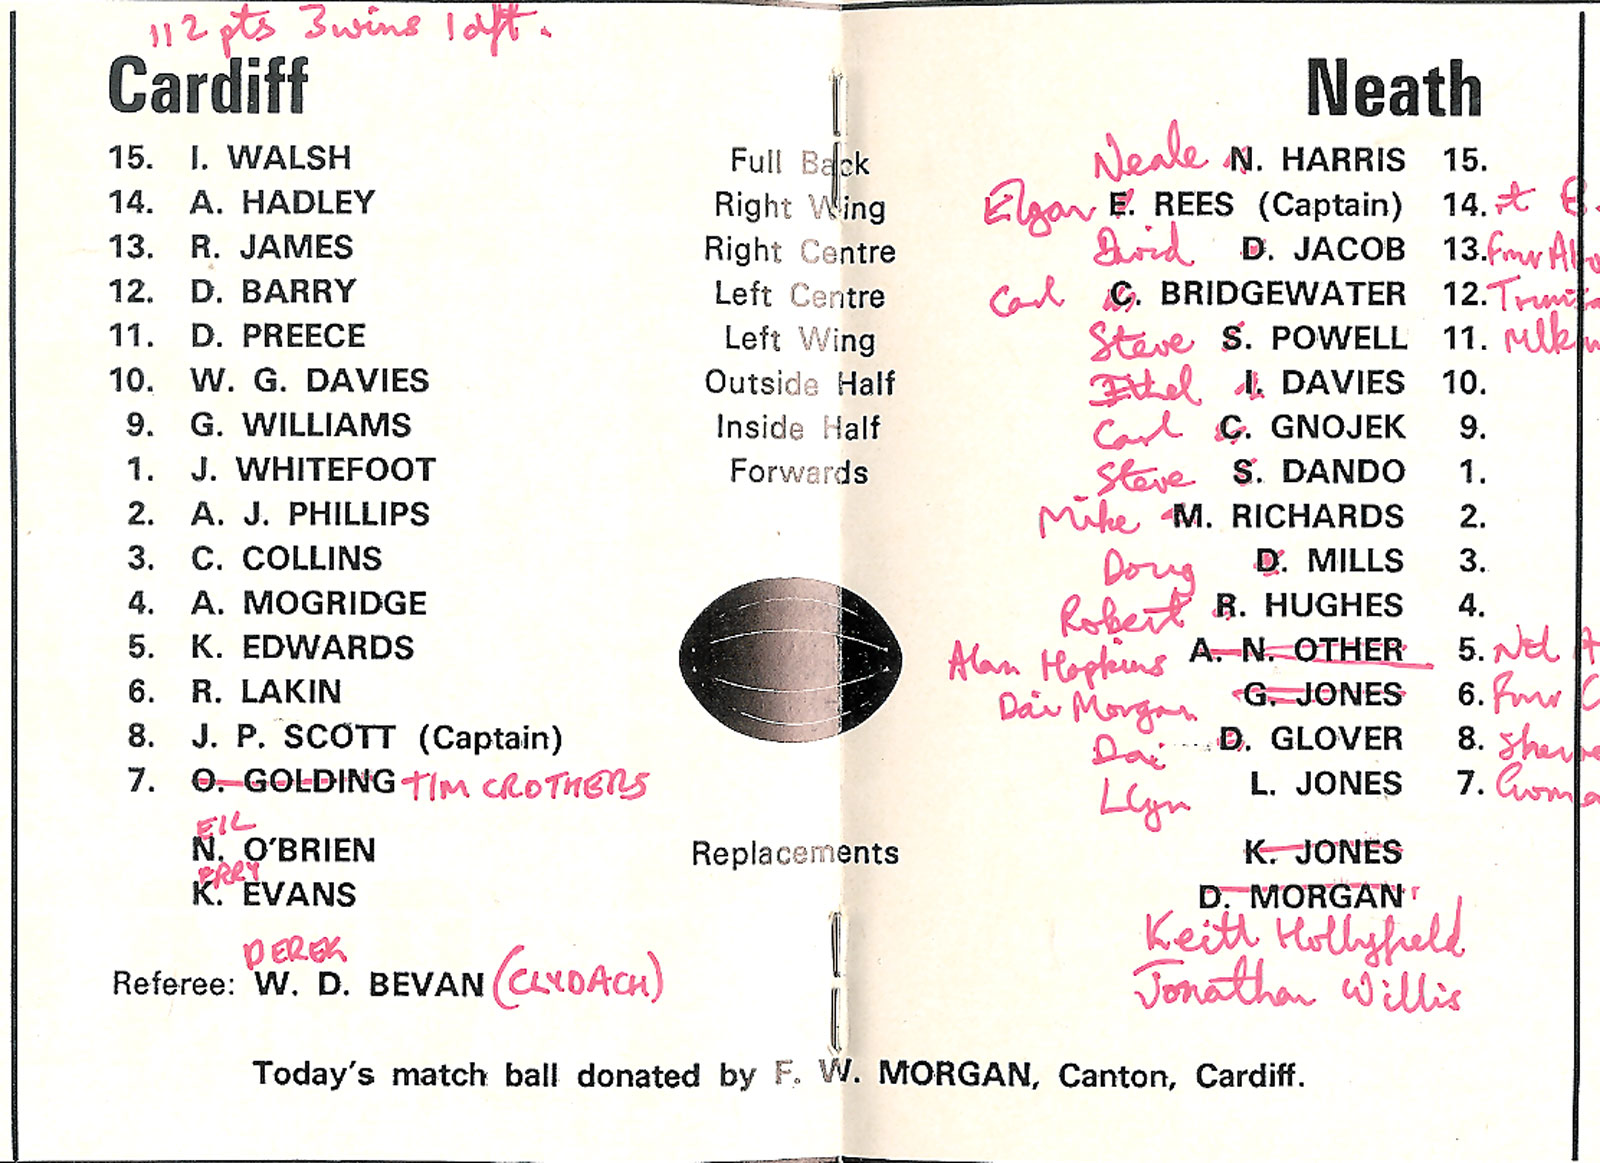 112 pts 3 wins 1 dft.
Cardiff Neath
15. I. WALSH Full Back Neale N. HARRIS 15.
14. A. HADLEY Right Wing Elgan E. REES (Captain) 14.
13. R. JAMES Right Centre David D. JACOB 13.
12. D. BARRY Left Centre Carl C. BRIDGEWATER 12.
11. D. PREECE Left Wing Steve S. POWELL 11.
10. W. G. DAVIES Outside Half I. DAVIES 10.
9. G. WILLIAMS Inside Half Carl C. GNOJEK 9.
1. J. WHITEFOOT Forwards Steve S. DANDO 1.
2. A. J. PHILLIPS Mike M. RICHARDS 2.
3. C. COLLINS Doug D. MILLS 3.
4. A. MOGRIDGE Robert R. HUGHES 4.
5. K. EDWARDS Alan Hopkins A. N. OTHER 5.
6. R. LAKIN Dai Morgan G. JONES 6.
8. J. P. SCOTT (Captain) Dai D. GLOVER 8.
7. O. GOLDING TIM CROTHERS Llyn L. JONES 7.
EIL
N. O'BRIEN Replacements K. JONES
ERRY
K. EVANS D. MORGAN
Keith Hollyfield
DEREK
Referee: W. D. BEVAN (CLYDACH) Jonathan Willis
Today's match ball donated by F. W. MORGAN, Canton, Cardiff.